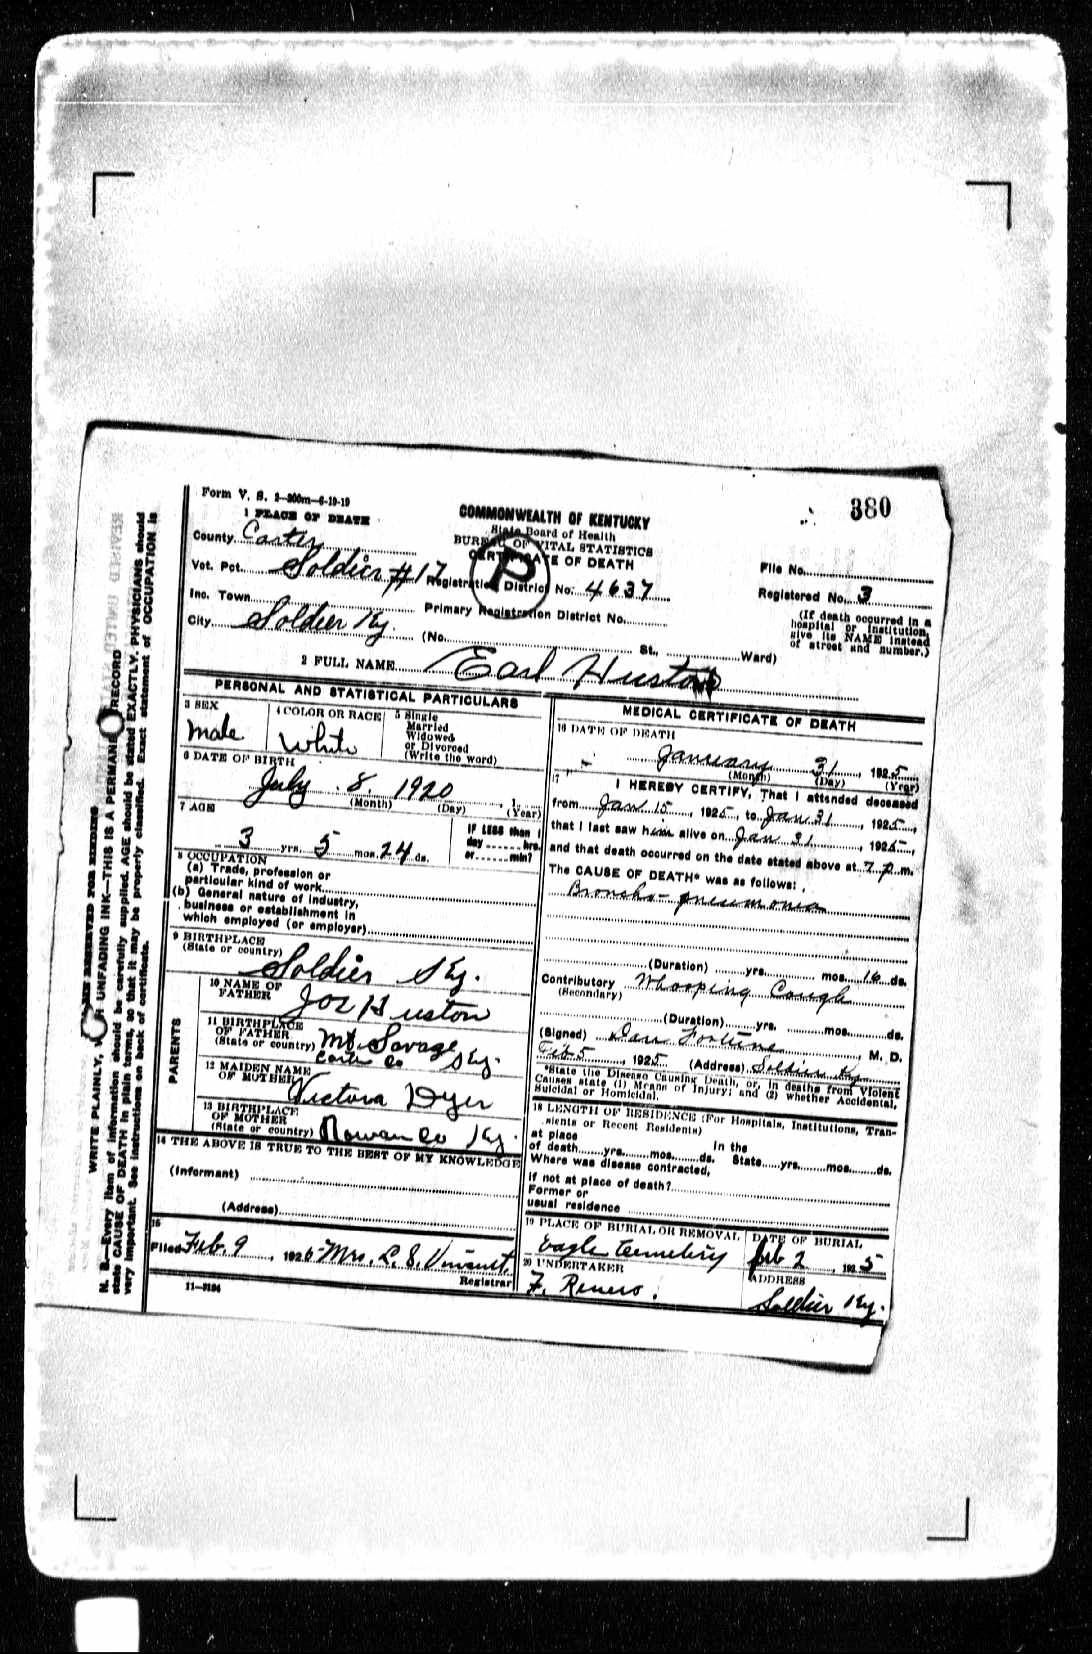 380
Form V. S. 2—200m—6-19-19
1 PLACE OF DEATH
COMMONWEALTH OF KENTUCKY
State Board of Health
BUREAU OF VITAL STATISTICS
CERTIFICATE OF DEATH
P
County Carter
Vot. Pct. Soldier #17
Registration District No. 4637
File No.
Registered No. 3
Inc. Town
Primary Registration District No.
City Soldier Ky.
(No. St., Ward)
(If death occurred in a
hospital or institution,
give its NAME instead
of street and number.)
2 FULL NAME Earl Huston
PERSONAL AND STATISTICAL PARTICULARS
3 SEX
male
4 COLOR OR RACE
White
5 Single
Married
Widowed
or Divorced
(Write the word)
6 DATE OF BIRTH
July 8. 1920, 1
(Month) (Day) (Year)
7 AGE
3 yrs. 5 mos. 24 ds.
If LESS than 1
day hrs.
or min?
8 OCCUPATION
(a) Trade, profession or
particular kind of work
(b) General nature of industry,
business or establishment in
which employed (or employer)
9 BIRTHPLACE
(State or country)
Soldier Ky.
PARENTS
10 NAME OF
FATHER
Joe Huston
11 BIRTHPLACE
OF FATHER
(State or country)
Mt. Savage
Carter Co Ky.
12 MAIDEN NAME
OF MOTHER
Victora Dyer
13 BIRTHPLACE
OF MOTHER
(State or country)
Rowan Co Ky.
14 THE ABOVE IS TRUE TO THE BEST OF MY KNOWLEDGE
(Informant)
(Address)
15
Filed Feb. 9, 1925 Mrs. L. S. Vincent.
Registrar
11—3184
MEDICAL CERTIFICATE OF DEATH
16 DATE OF DEATH
January 31, 1925
(Month) (Day) (Year)
17
I HEREBY CERTIFY, That I attended deceased
from Jan 15, 1925, to Jan 31, 1925,
that I last saw him alive on Jan 31, 1925,
and that death occurred on the date stated above at 7 P. m.
The CAUSE OF DEATH* was as follows:
Broncho-pneumonia
(Duration) yrs. mos. 16 ds.
Contributory Whooping Cough
(Secondary)
(Duration) yrs. mos. ds.
(Signed) Dan Fortune, M. D.
Feb 5, 1925 (Address) Soldier Ky
*State the Disease Causing Death, or, in deaths from Violent
Causes state (1) Means of Injury; and (2) whether Accidental,
Suicidal or Homicidal.
18 LENGTH OF RESIDENCE (For Hospitals, Institutions, Tran-
sients or Recent Residents)
At place
of death yrs. mos. ds. In the
State yrs. mos. ds.
Where was disease contracted,
if not at place of death?
Former or
usual residence
19 PLACE OF BURIAL OR REMOVAL
Eagle Cemetery
DATE OF BURIAL
Feb 2, 1925
20 UNDERTAKER
ADDRESS
Soldier Ky.
WRITE PLAINLY, UNFADING INK—THIS IS A PERMANENT RECORD
N. B.—Every item of information should be carefully supplied. AGE should be stated EXACTLY. PHYSICIANS should
state CAUSE OF DEATH in plain terms, so that it may be properly classified. Exact statement of OCCUPATION is
very important. See instructions on back of certificate.